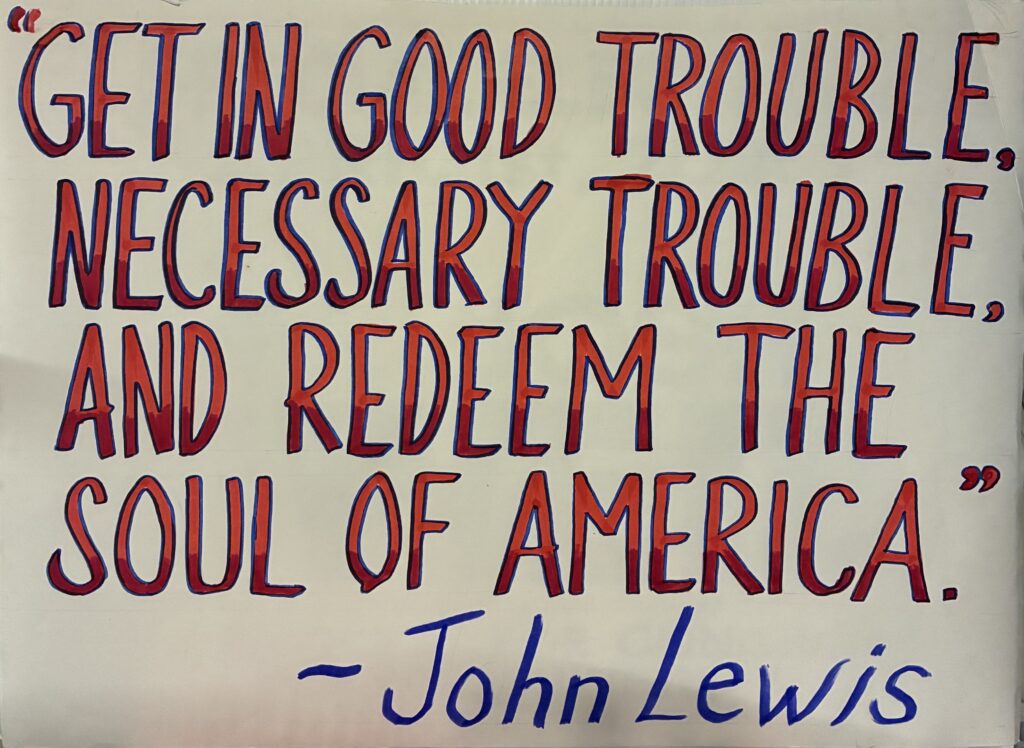 “GET IN GOOD TROUBLE,
NECESSARY TROUBLE,
AND REDEEM THE
SOUL OF AMERICA.”
~John Lewis